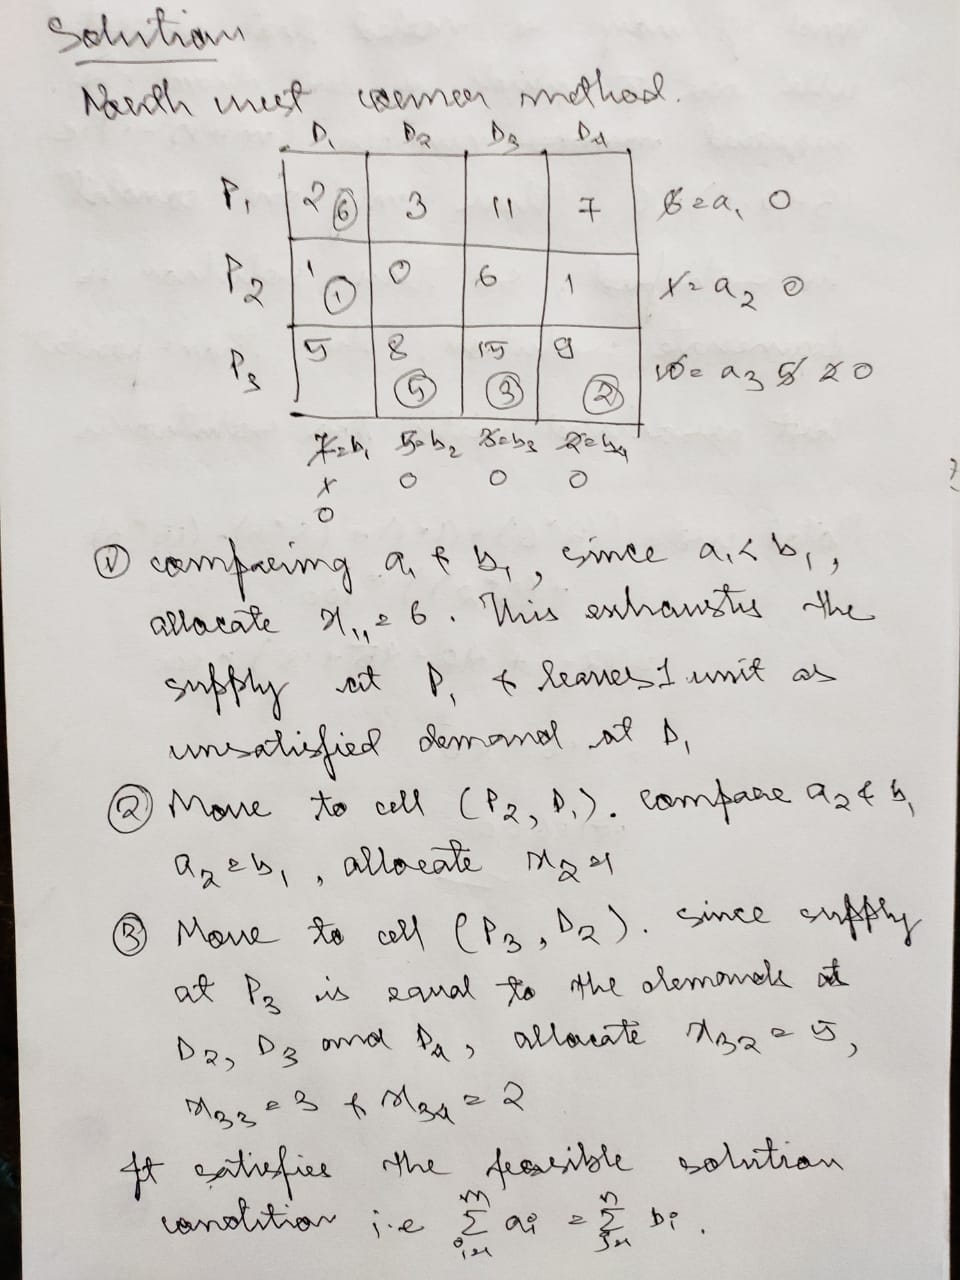 Solution
North west corner method.
D1 D2 D3 D4
P1 2 ⑥ 3 11 7 6 = a1 0
P2 1 ① 0 6 1 1 = a2 0
P3 5 8 ⑤ 15 ③ 9 ② 10 = a3 5 2 0
7=b1 5=b2 3=b3 2=b4
1 0 0 0
0
① comparing a1 & b1, since a1 < b1,
allocate x11 = 6. This exhausts the
supply at P1 & leaves 1 unit as
unsatisfied demand at D1
② Move to cell (P2, D1). compare a2 & b1
a2 = b1, allocate x2 = 1
③ Move to cell (P3, D2). since supply
at P3 is equal to the demands at
D2, D3 and D4, allocate x32 = 5,
x33 = 3 & x34 = 2
It satisfies the feasible solution
condition i.e m Σ i=1 ai = n Σ j=1 bi.